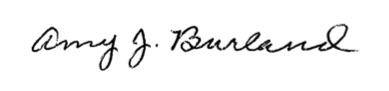 Amy J. Burland